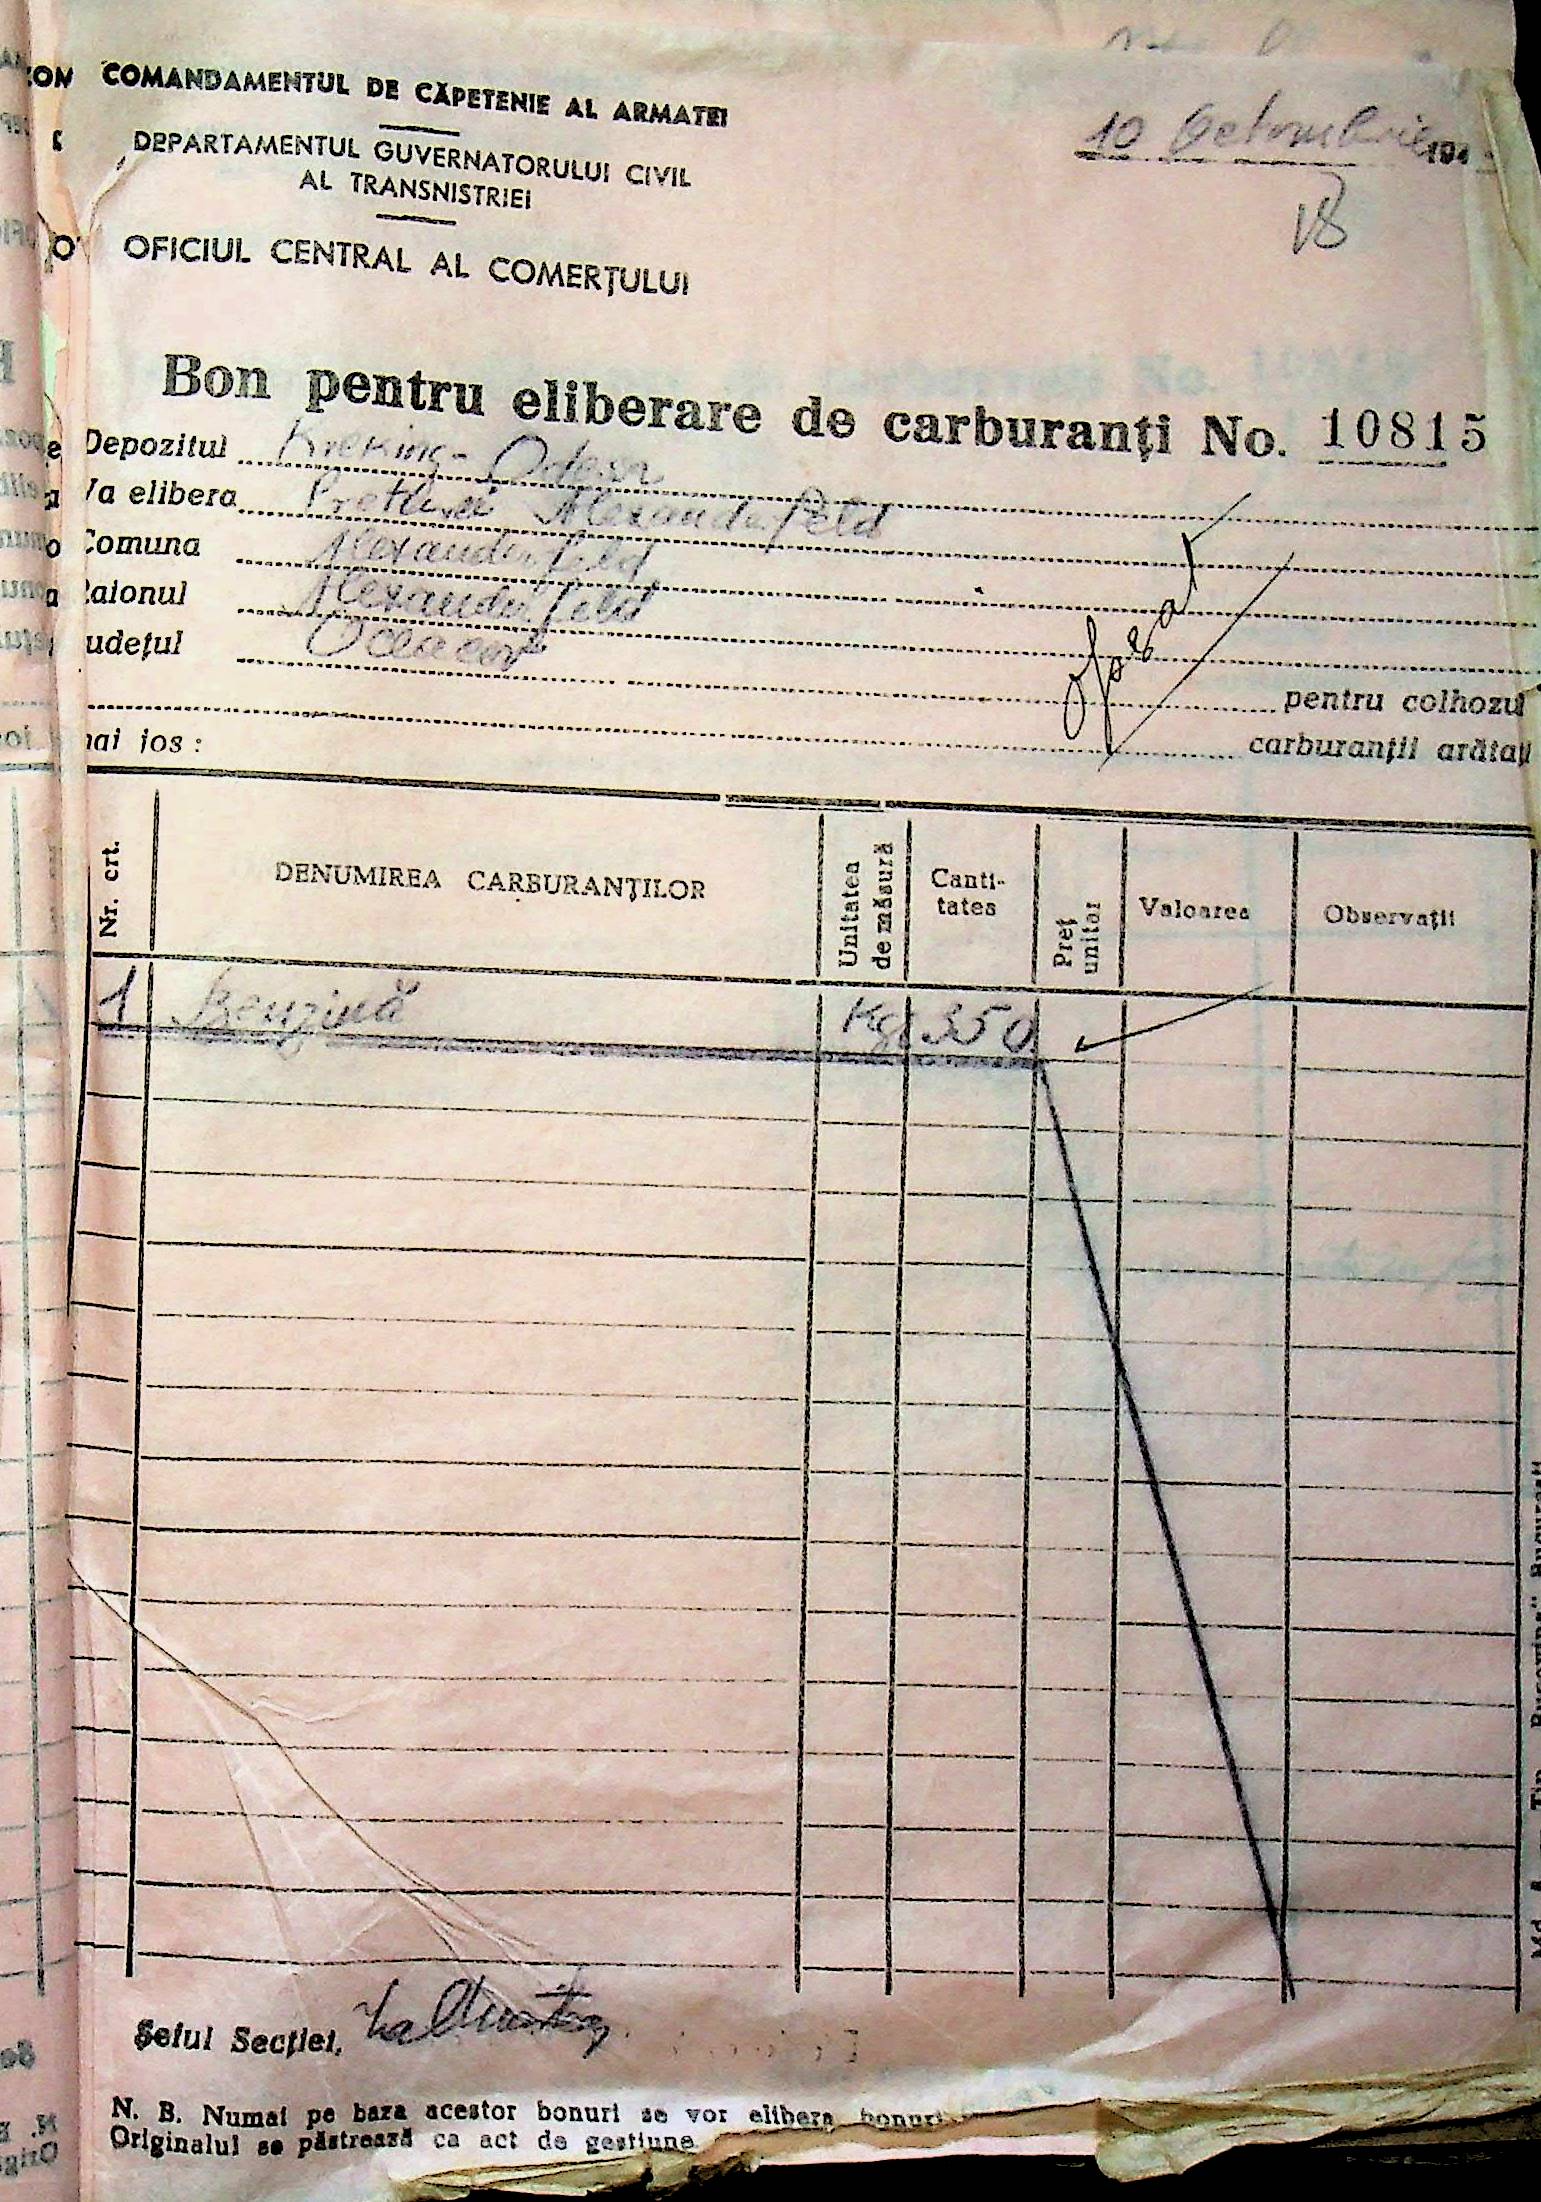 COMANDAMENTUL DE CĂPETENIE AL ARMATEI
DEPARTAMENTUL GUVERNATORULUI CIVIL
AL TRANSNISTRIEI
OFICIUL CENTRAL AL COMERȚULUI
10 Octombrie 194
18
Bon pentru eliberare de carburanți No. 10815
Depozitul Kreking - Odesa
Va elibera Preturei Alexanderfeld
Comuna Alexanderfeld
Raionul Alexanderfeld
udețul
pentru colhozul
mai jos : carburanții arătați
Nr. crt.
DENUMIREA CARBURANȚILOR
Unitatea de măsură
Canti-
tates
Preț unitar
Valoarea
Observații
1 Benzină Kgr 350
Șeful Secției,
N. B. Numai pe baza acestor bonuri se vor elibera bonuri
Originalul se păstrează ca act de gestiune